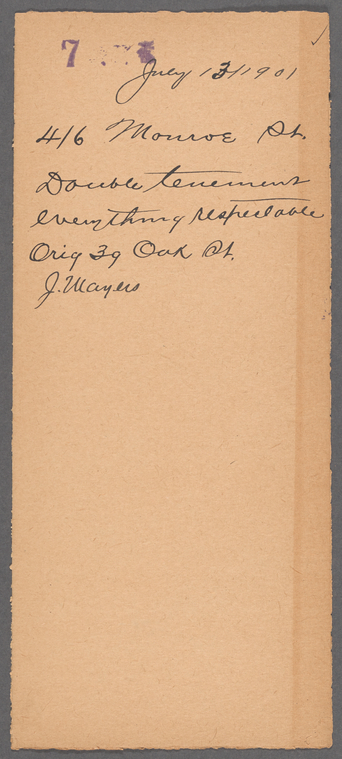 7
July 13/1901
416 Monroe St.
Double tenement
everything respectable
Orig 39 Oak St.
J. Mayers